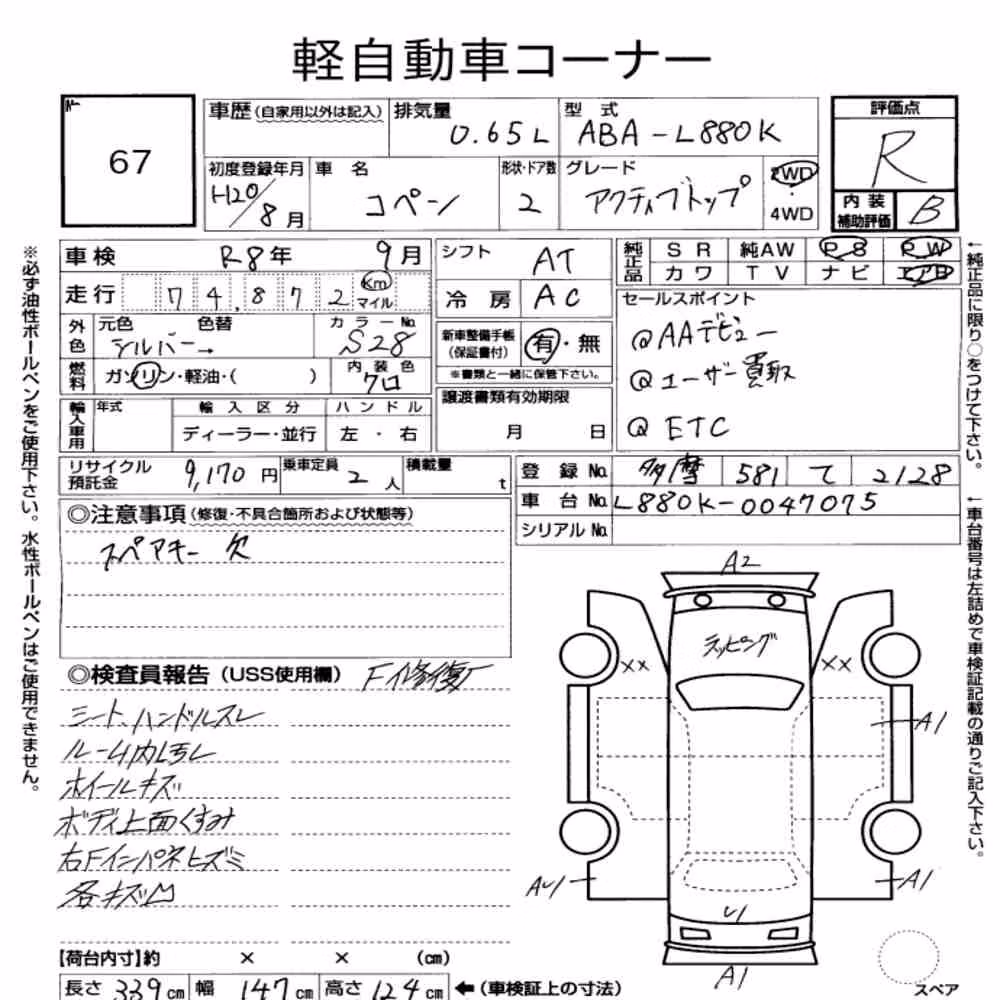 軽自動車コーナー
67
車歴 (自家用以外は記入)
排気量 0.65L
型式 ABA-L880K
評価点 R
初度登録年月 H20/8月
車名 コペン
形状・ドア数 2
グレード アクティブトップ
2WD
4WD
内装補助評価 B
車検 R8年 9月
シフト AT
純正品 SR 純AW PS PW
カワ TV ナビ エアB
走行 74,872 Km マイル
冷房 AC
セールスポイント
@AAデビュー
@ユーザー買取
@ETC
外色 元色 シルバー→ 色替
カラーNo. S28
新車整備手帳 (保証書付) 有・無
※書類と一緒に保管下さい。
燃料 ガソリン・軽油・( )
内装色 クロ
譲渡書類有効期限
月 日
輸入車用 年式 輸入区分 ハンドル
ディーラー・並行 左・右
リサイクル預託金 9,170円
乗車定員 2人
積載量 t
登録No. 多摩 581 て 2128
車台No. L880K-0047075
シリアルNo.
◎注意事項 (修復・不具合箇所および状態等)
スペアキー欠
◎検査員報告 (USS使用欄) F修復
シート、ハンドルスレ
ルーム内ヨゴレ
ホイールキズ
ボディ上面くすみ
右Fインパネヒズミ
各キズ凹
A2
ラッピング
××
××
A1
AU1
A1
U1
A1
【荷台内寸】約 × × (cm)
長さ 339cm 幅 147cm 高さ 124cm ←(車検証上の寸法)
スペア
※必ず油性ボールペンをご使用下さい。水性ボールペンはご使用できません。
←純正品に限り○をつけて下さい。
←車台番号は左詰めで車検証記載の通りご記入下さい。